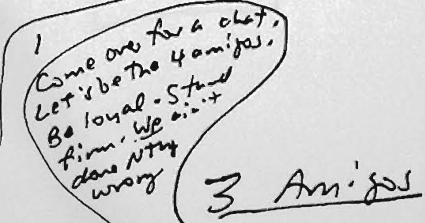 1
Come over for a chat.
Let's be the 4 amigos.
Be loyal. Stand
firm. We ain't
done Nthg
wrong
3 Amigos